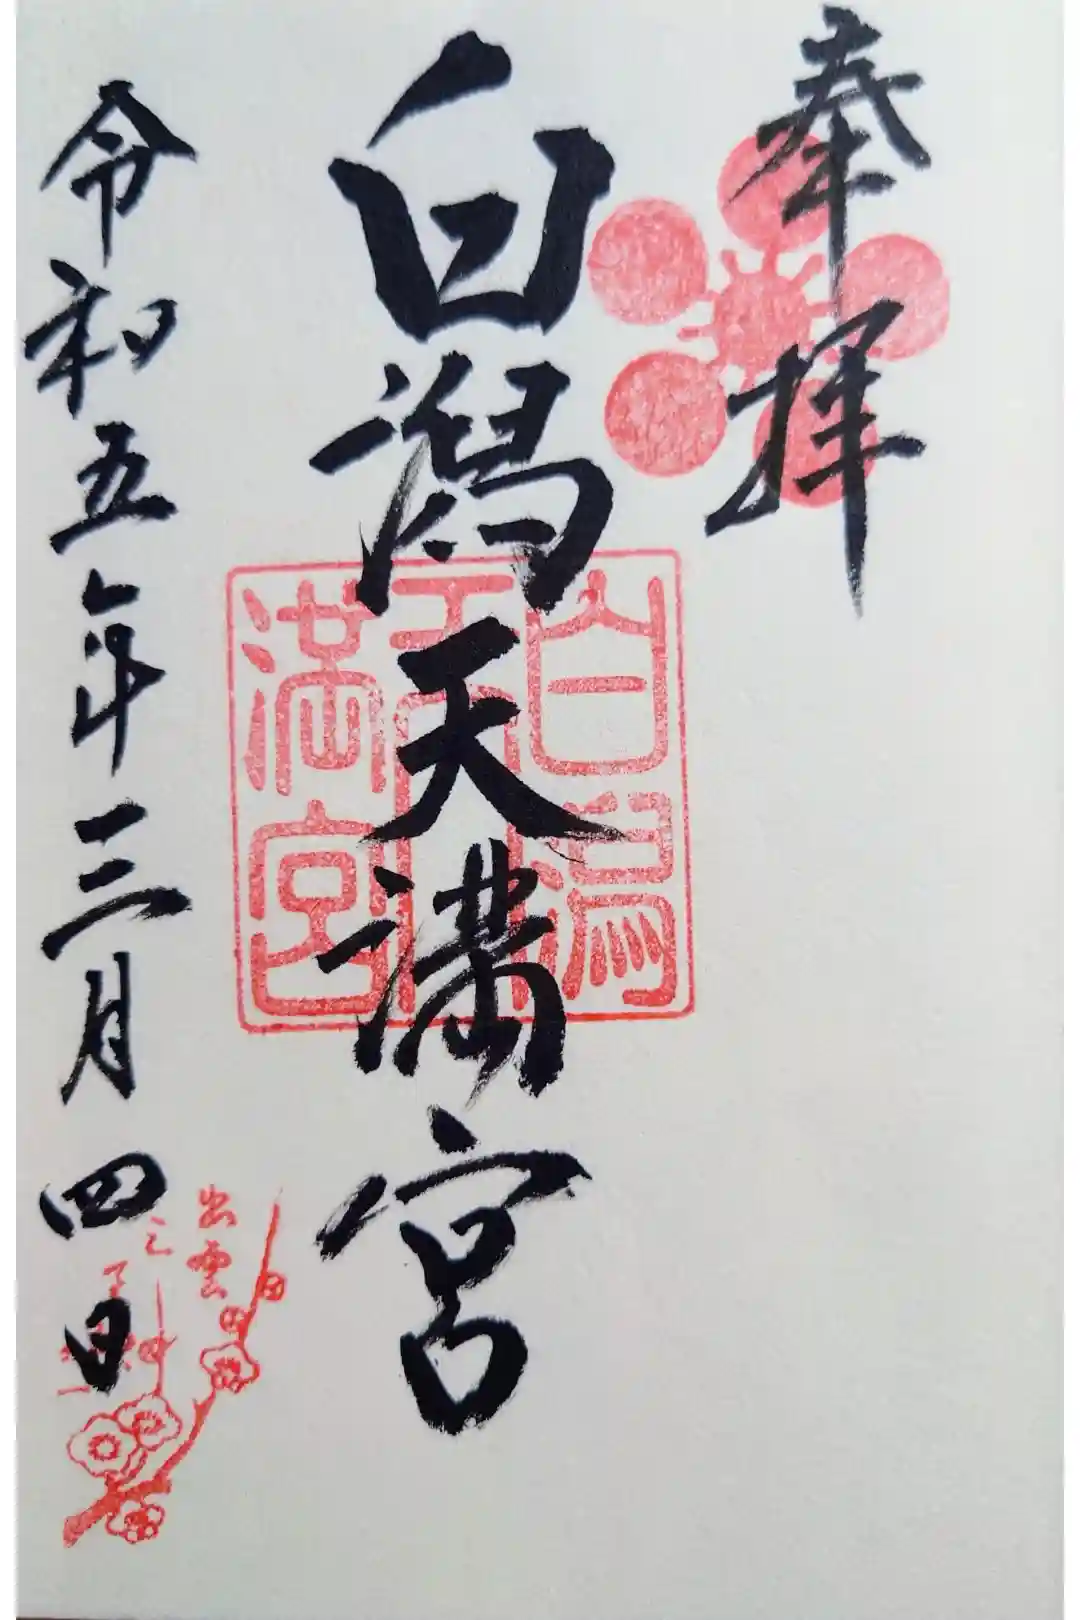 奉拝
白潟天満宮
白潟
天
満宮
令和五年三月四日
出雲